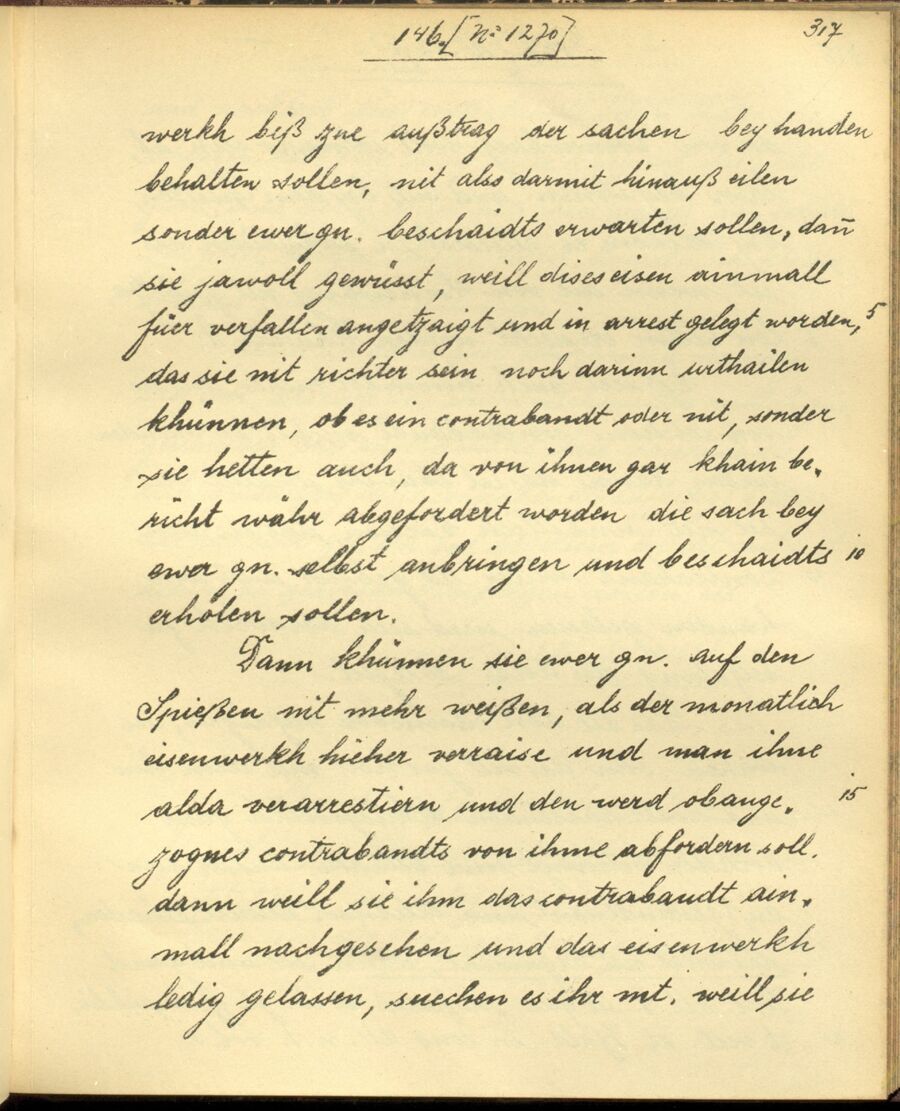 146. [Nº 1270]
317
werkh biß zue außtrag der sachen bey handen
behalten sollen, nit also darmit hinauß eilen
sonder ewer gn. beschaidts erwarten sollen, dan̄
sie jawoll gewüsst, weill dises eisen ainmall
füer verfallen angetzaigt und in arrest gelegt worden, 5
das sie nit richter sein noch darinn urthailen
khünnen, ob es ein contrabandt oder nit, sonder
sie hetten auch, da von ihnen gar khain be-
richt währ abgefordert worden die sach bey
ewer gn. selbst anbringen und beschaidts 10
erholen sollen.
Dann khünnen sie ewer gn. auf den
Spießen nit mehr weißen, als der monatlich
eisenwerkh hieher verraise und man ihne
alda verarrestiern und den werd obange- 15
zognes contrabandts von ihme abfordern soll.
dann weill sie ihm das contrabandt ain-
mall nachgesehen und das eisenwerkh
ledig gelassen, suechen es ihr mt. weill sie